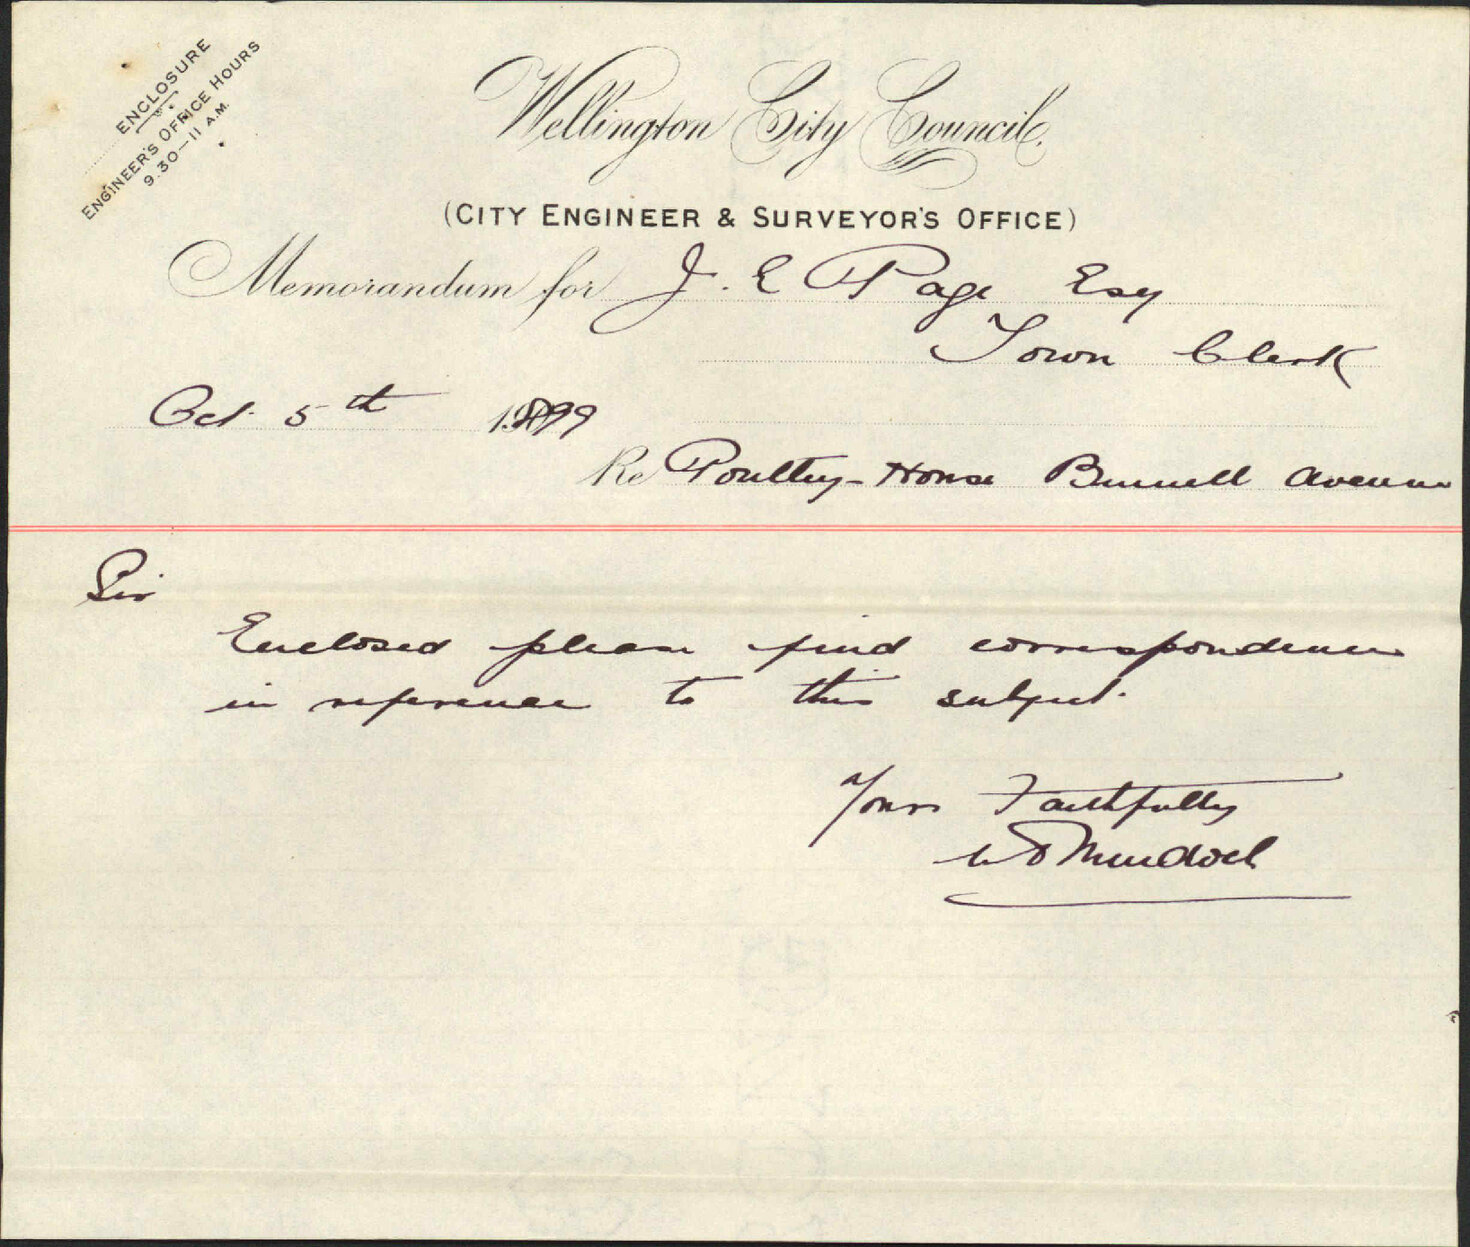 ENCLOSURE
ENGINEER'S OFFICE HOURS
9.30–11 A.M.
Wellington City Council.
(CITY ENGINEER & SURVEYOR'S OFFICE)
Memorandum for J. E Page Esq
Town Clerk
Oct 5th 1899
Re Poultry-House Burnell Avenue
Sir
Enclosed please find correspondence
in reference to this subject.
Yours Faithfully
Murdoch